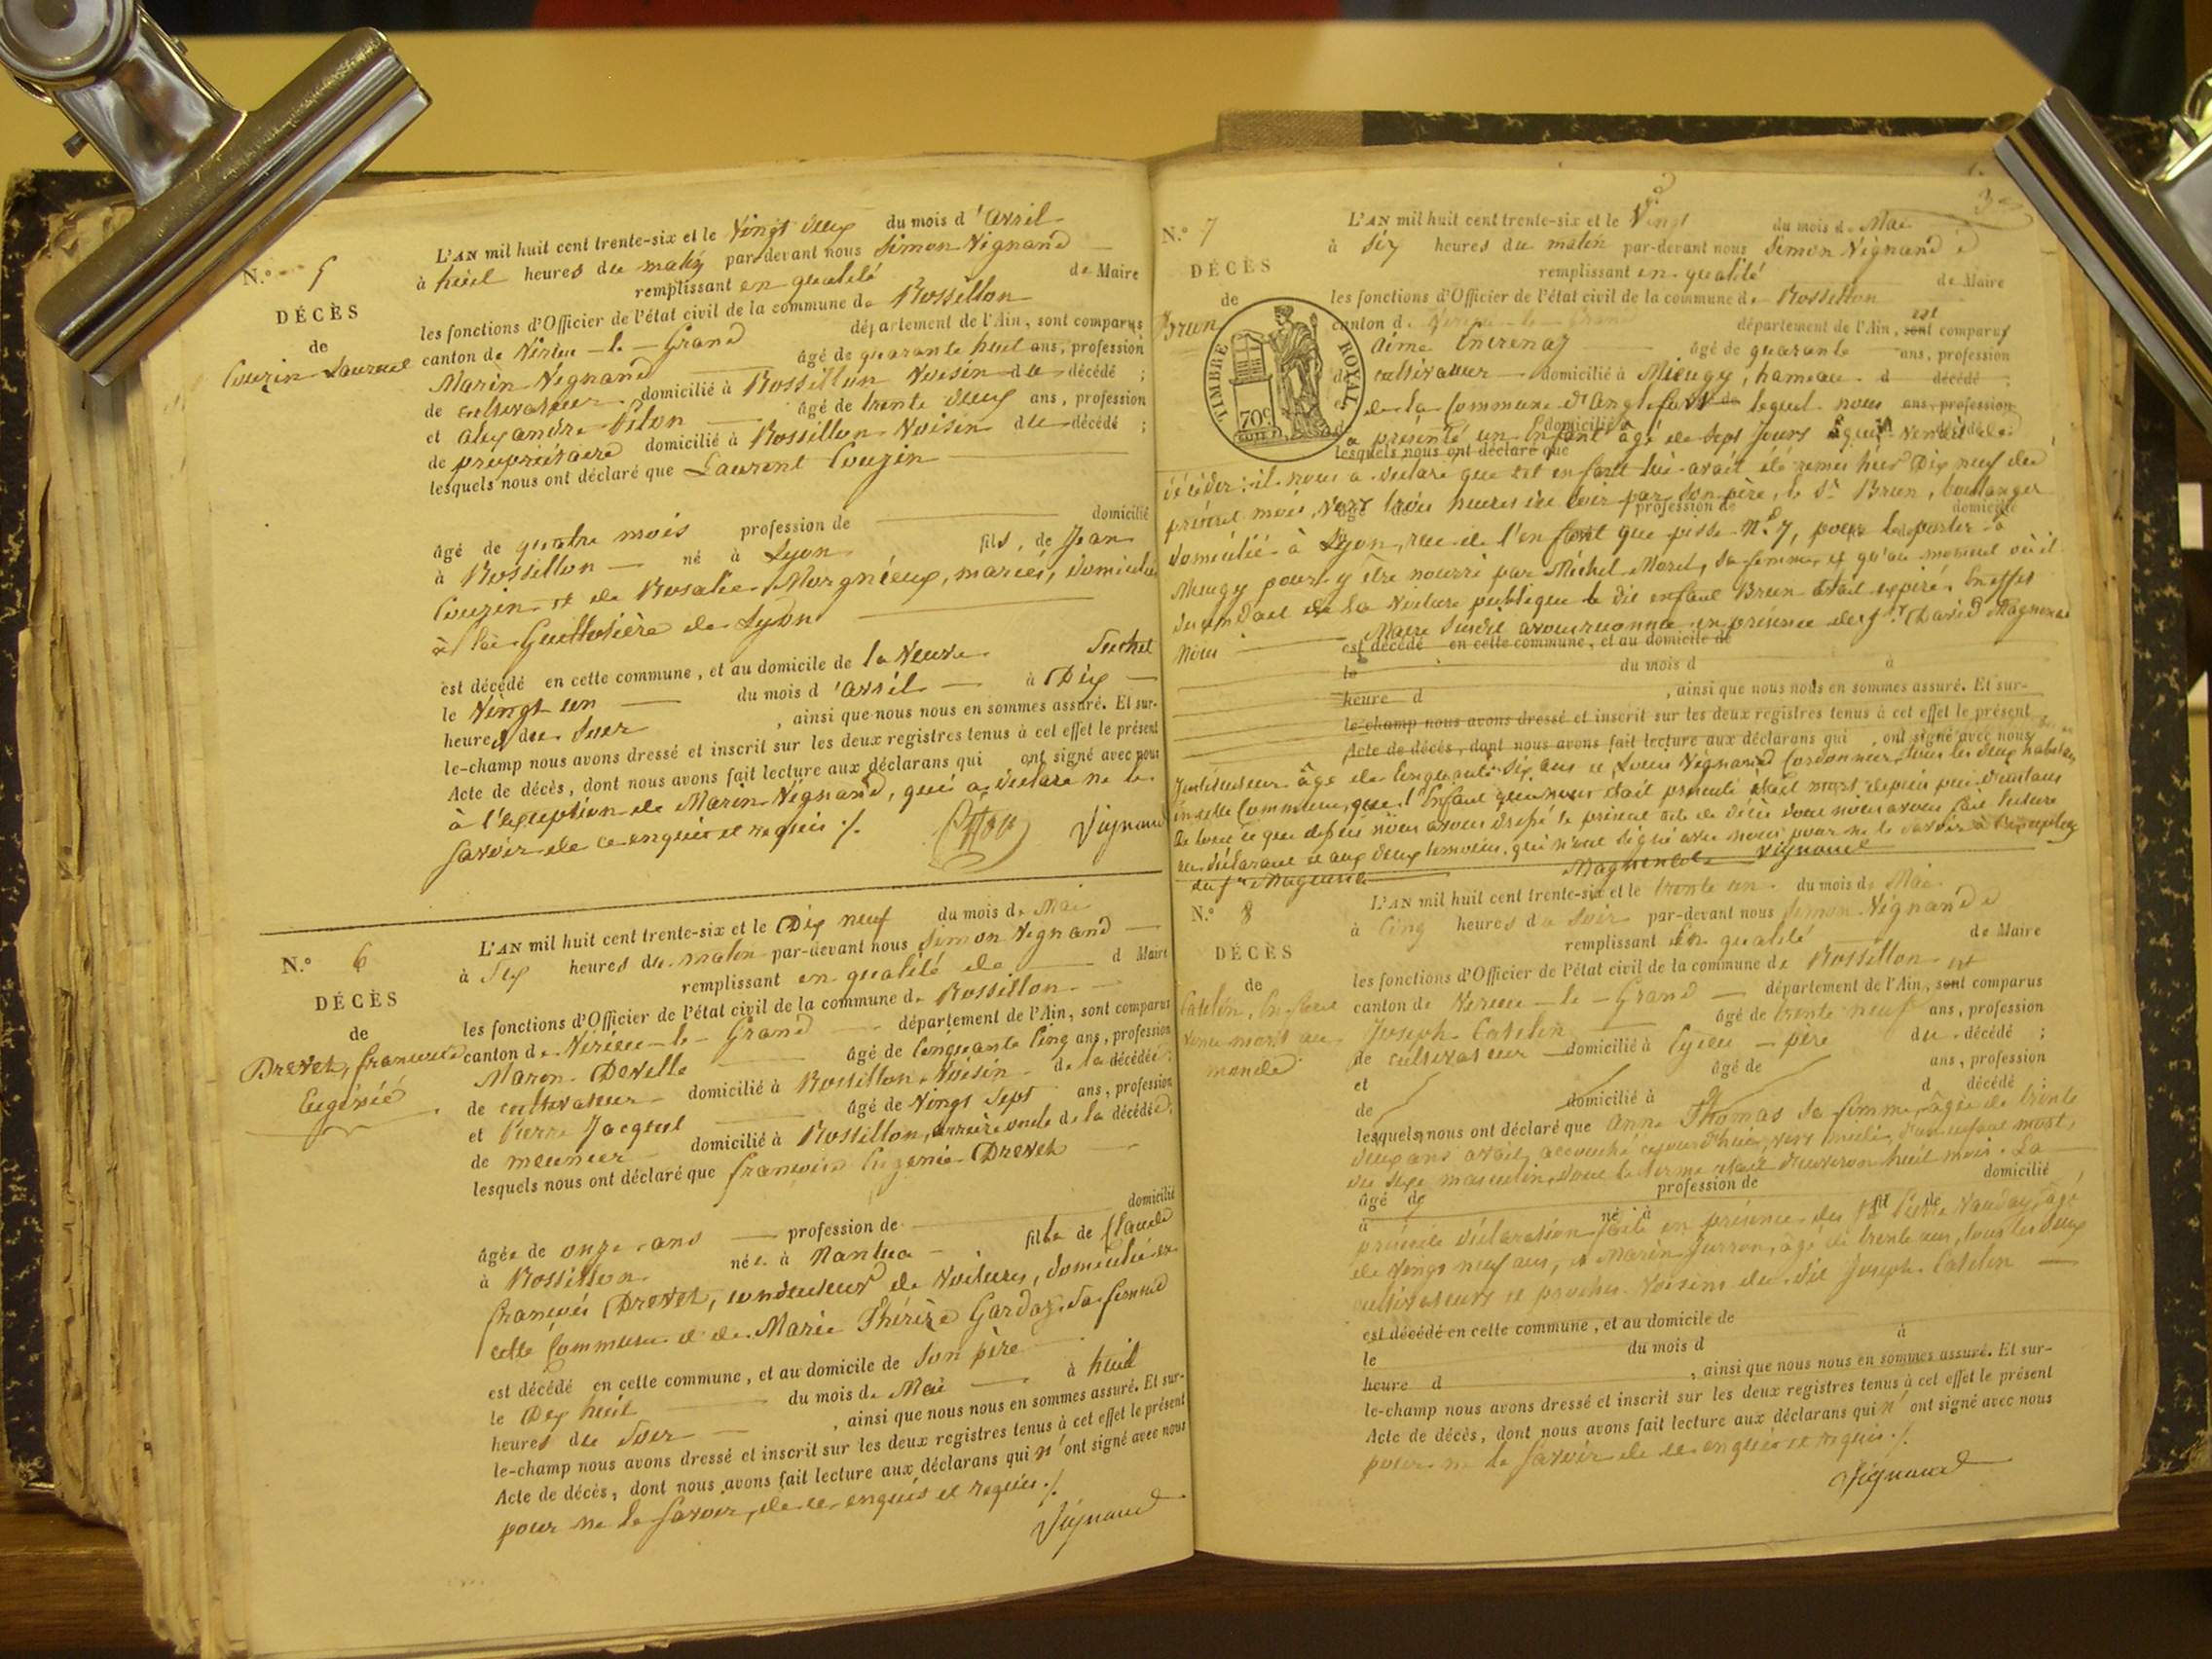 N.º 5
DÉCÈS
de
Couzin Laurent
L'AN mil huit cent trente-six et le Vingt deux du mois d'avril
à huit heures du matin par-devant nous Simon Vignand
remplissant en qualité de Maire
les fonctions d'Officier de l'état civil de la commune de Rossillon
canton de Virieu-le-Grand département de l'Ain, sont comparus
Marin Vignand âgé de quarante huit ans, profession
de cultivateur domicilié à Rossillon Voisin du décédé ;
et alexandre Piton âgé de trente deux ans, profession
de propriétaire domicilié à Rossillon Voisin du décédé ;
lesquels nous ont déclaré que Laurent Couzin
âgé de quatre mois profession de domicilié
à Rossillon né à Lyon fils, de Jean
Couzin et de Rosalie Morgnieux, mariés, domiciliés
à la Guillotière de Lyon
est décédé en cette commune, et au domicile de la Veuve Suchet
le Vingt un du mois d'avril à Dix
heures du Soir, ainsi que nous nous en sommes assuré. Et sur-
le-champ nous avons dressé et inscrit sur les deux registres tenus à cet effet le présent
Acte de décès, dont nous avons fait lecture aux déclarans qui ont signé avec nous
à l'exception de Marin Vignand, qui a déclaré ne le
savoir de ce enquis et requis ./.
Vignand
N.º 6
DÉCÈS
de
Drevet, françoise
Eugénie
L'AN mil huit cent trente-six et le Dix neuf du mois de Mai
à Six heures du matin par-devant nous Simon Vignand
remplissant en qualité de d Maire
les fonctions d'Officier de l'état civil de la commune de Rossillon
canton de Virieu-le-Grand département de l'Ain, sont comparus
Maron Develle âgé de Cinquante Cinq ans, profession
de cultivateur domicilié à Rossillon Voisin de la décédée ;
et Pierre Jacquet âgé de Vingt Sept ans, profession
de meunier domicilié à Rossillon, arrière oncle de la décédée ;
lesquels nous ont déclaré que françoise Eugénie Drevet
âgée de onze ans profession de domicilié
à Rossillon née à Nantua fille de Claude
françois Drevet, conducteur de Voitures, domicilié en
cette Commune et de Marie Thérèze Gardaz sa femme
est décédé en cette commune, et au domicile de Son père
le Dix huit du mois de Mai à huit
heures du Soir, ainsi que nous nous en sommes assuré. Et sur-
le-champ nous avons dressé et inscrit sur les deux registres tenus à cet effet le présent
Acte de décès, dont nous avons fait lecture aux déclarans qui n'ont signé avec nous
pour ne le savoir, de ce enquis et requis ./.
Vignand
3
N.º 7
DÉCÈS
de
Brun
TIMBRE ROYAL
70 c.
L'AN mil huit cent trente-six et le Vingt du mois de Mai
à Six heures du matin par-devant nous Simon Vignand
remplissant en qualité de Maire
les fonctions d'Officier de l'état civil de la commune de Rossillon
canton de Virieu-le-Grand département de l'Ain, sont est comparus
aimé âgé de quarante ans, profession
de cultivateur domicilié à Mieugy, hameau d décédé ;
de la Commune d'anglefort lequel nous ans, profession
a présenté un Enfant âgé de Sept Jours qui venait de
domicilié à décédé
lesquels nous ont déclaré que
décéder : il nous a déclaré que cet enfant lui avait été remis hier Dix neuf du
présent mois, vers trois heures du soir par son père, le Sr Brun, boulanger
âgé de profession de domicilié
domicilié à Lyon, rue de l'enfant que pisse Nº 7, pour le porter à
Mieugy pour y être nourri par Michel Morel, sa femme, et qu'au moment où il
descendait de la Voiture publique le dit enfant Brun était expiré. En effet
Nous Maire susdit avons reconnu en présence des Srs David Magnenat
est décédé en cette commune, et au domicile de
le du mois d à
heure d, ainsi que nous nous en sommes assuré. Et sur-
le-champ nous avons dressé et inscrit sur les deux registres tenus à cet effet le présent
Acte de décès, dont nous avons fait lecture aux déclarans qui ont signé avec nous
Instituteur âgé de Cinquante Six ans et Louis Vignand Cordonnier, tous les deux habitans
en cette Commune, que l'Enfant qui nous était présenté était mort depuis peu d'instans
De tout ce que dessus nous avons dressé le présent acte de décès dont nous avons fait lecture
au déclarant et aux deux témoins, qui n'ont signé avec nous pour ne le savoir à l'exception
du Sr Magnenat
Magnenat Vignand
N.º 8
DÉCÈS
de
Catelin, Enfant
venu mort au
monde
L'AN mil huit cent trente-six et le trente un du mois de Mai
à Cinq heures du Soir par-devant nous Simon Vignand
remplissant en qualité de Maire
les fonctions d'Officier de l'état civil de la commune de Rossillon
canton de Virieu-le-Grand département de l'Ain, sont est comparus
Joseph Catelin âgé de trente neuf ans, profession
de cultivateur domicilié à père du décédé ;
et âgé de ans, profession
de domicilié à d décédé ;
lesquels nous ont déclaré que anne Thomas sa femme, âgée de trente
deux ans avait accouché cejourd'hui, vers midi, d'un enfant mort,
du sexe masculin, dont le terme était d'environ huit mois. La
âgé de profession de domicilié
à né à fil de
présente déclaration faite en présence des Srs Pierre âgé
de Vingt neuf ans, et Marin Jurron, âgé de trente ans, tous les deux
cultivateurs et proches Voisins du dit Joseph Catelin
est décédé en cette commune, et au domicile de
le du mois d à
heure d, ainsi que nous nous en sommes assuré. Et sur-
le-champ nous avons dressé et inscrit sur les deux registres tenus à cet effet le présent
Acte de décès, dont nous avons fait lecture aux déclarans qui n'ont signé avec nous
pour ne le savoir de ce enquis et requis ./.
Vignand